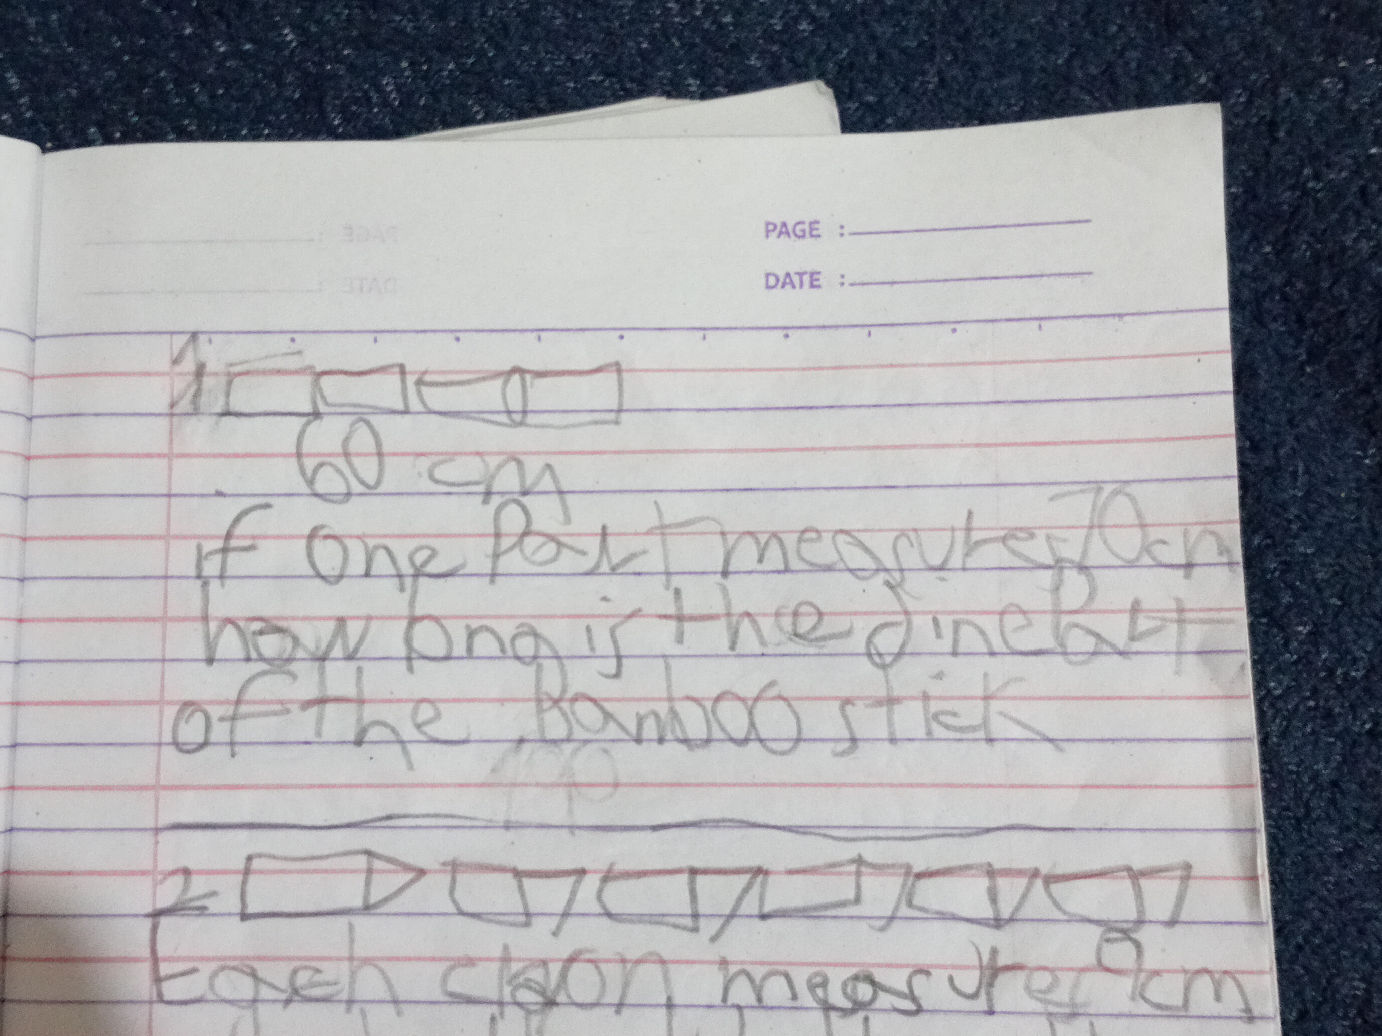 PAGE :
DATE :
1
60 cm
if one Part measures 70cm
how long is the dine Part
of the Bamboo stick
2
Each claon measures 9cm